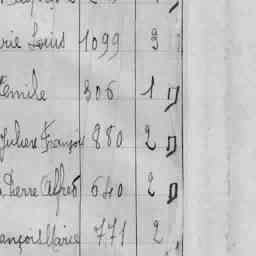 rie Louis 1099 3
Emile 306 1
Julien François 880 2
Pierre Alfred 640 2
ançois Marie 771 2